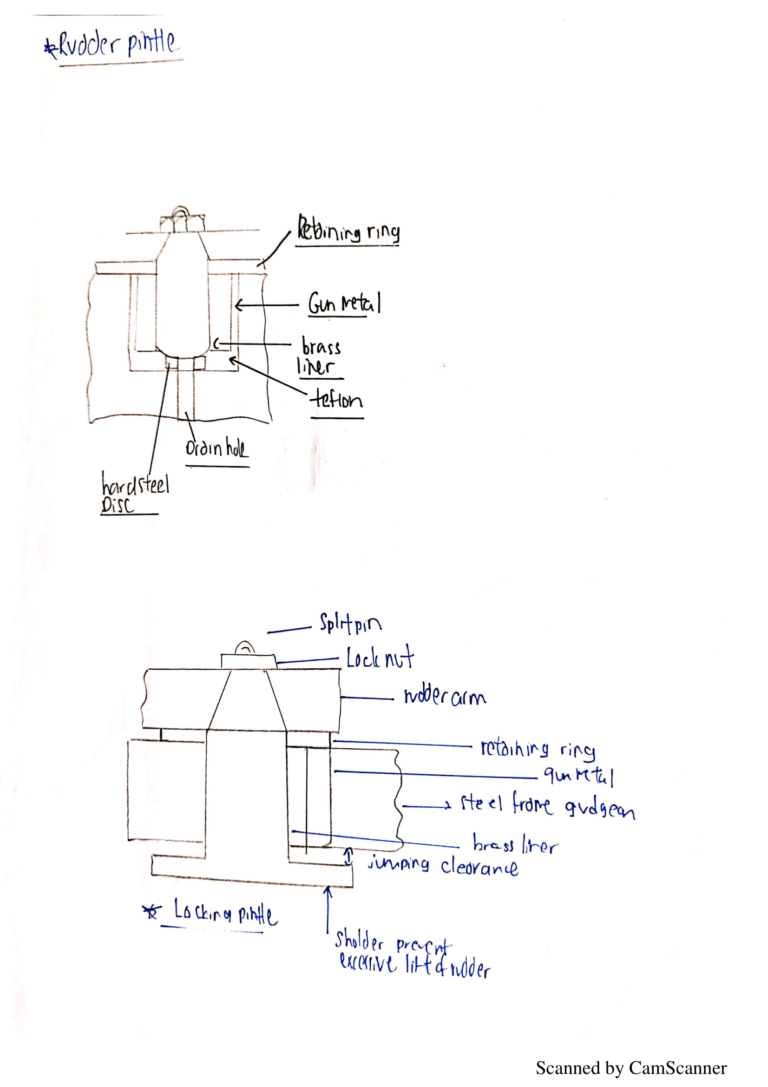 *Rudder pintle
Retaining ring
Gun metal
brass
liner
teflon
Drain hole
hard steel
Disc
Split pin
Lock nut
rudder arm
retaining ring
gun metal
steel frame gudgean
brass liner
jumping clearance
* Locking pintle
Sholder prevent
excessive lift of rudder
Scanned by CamScanner